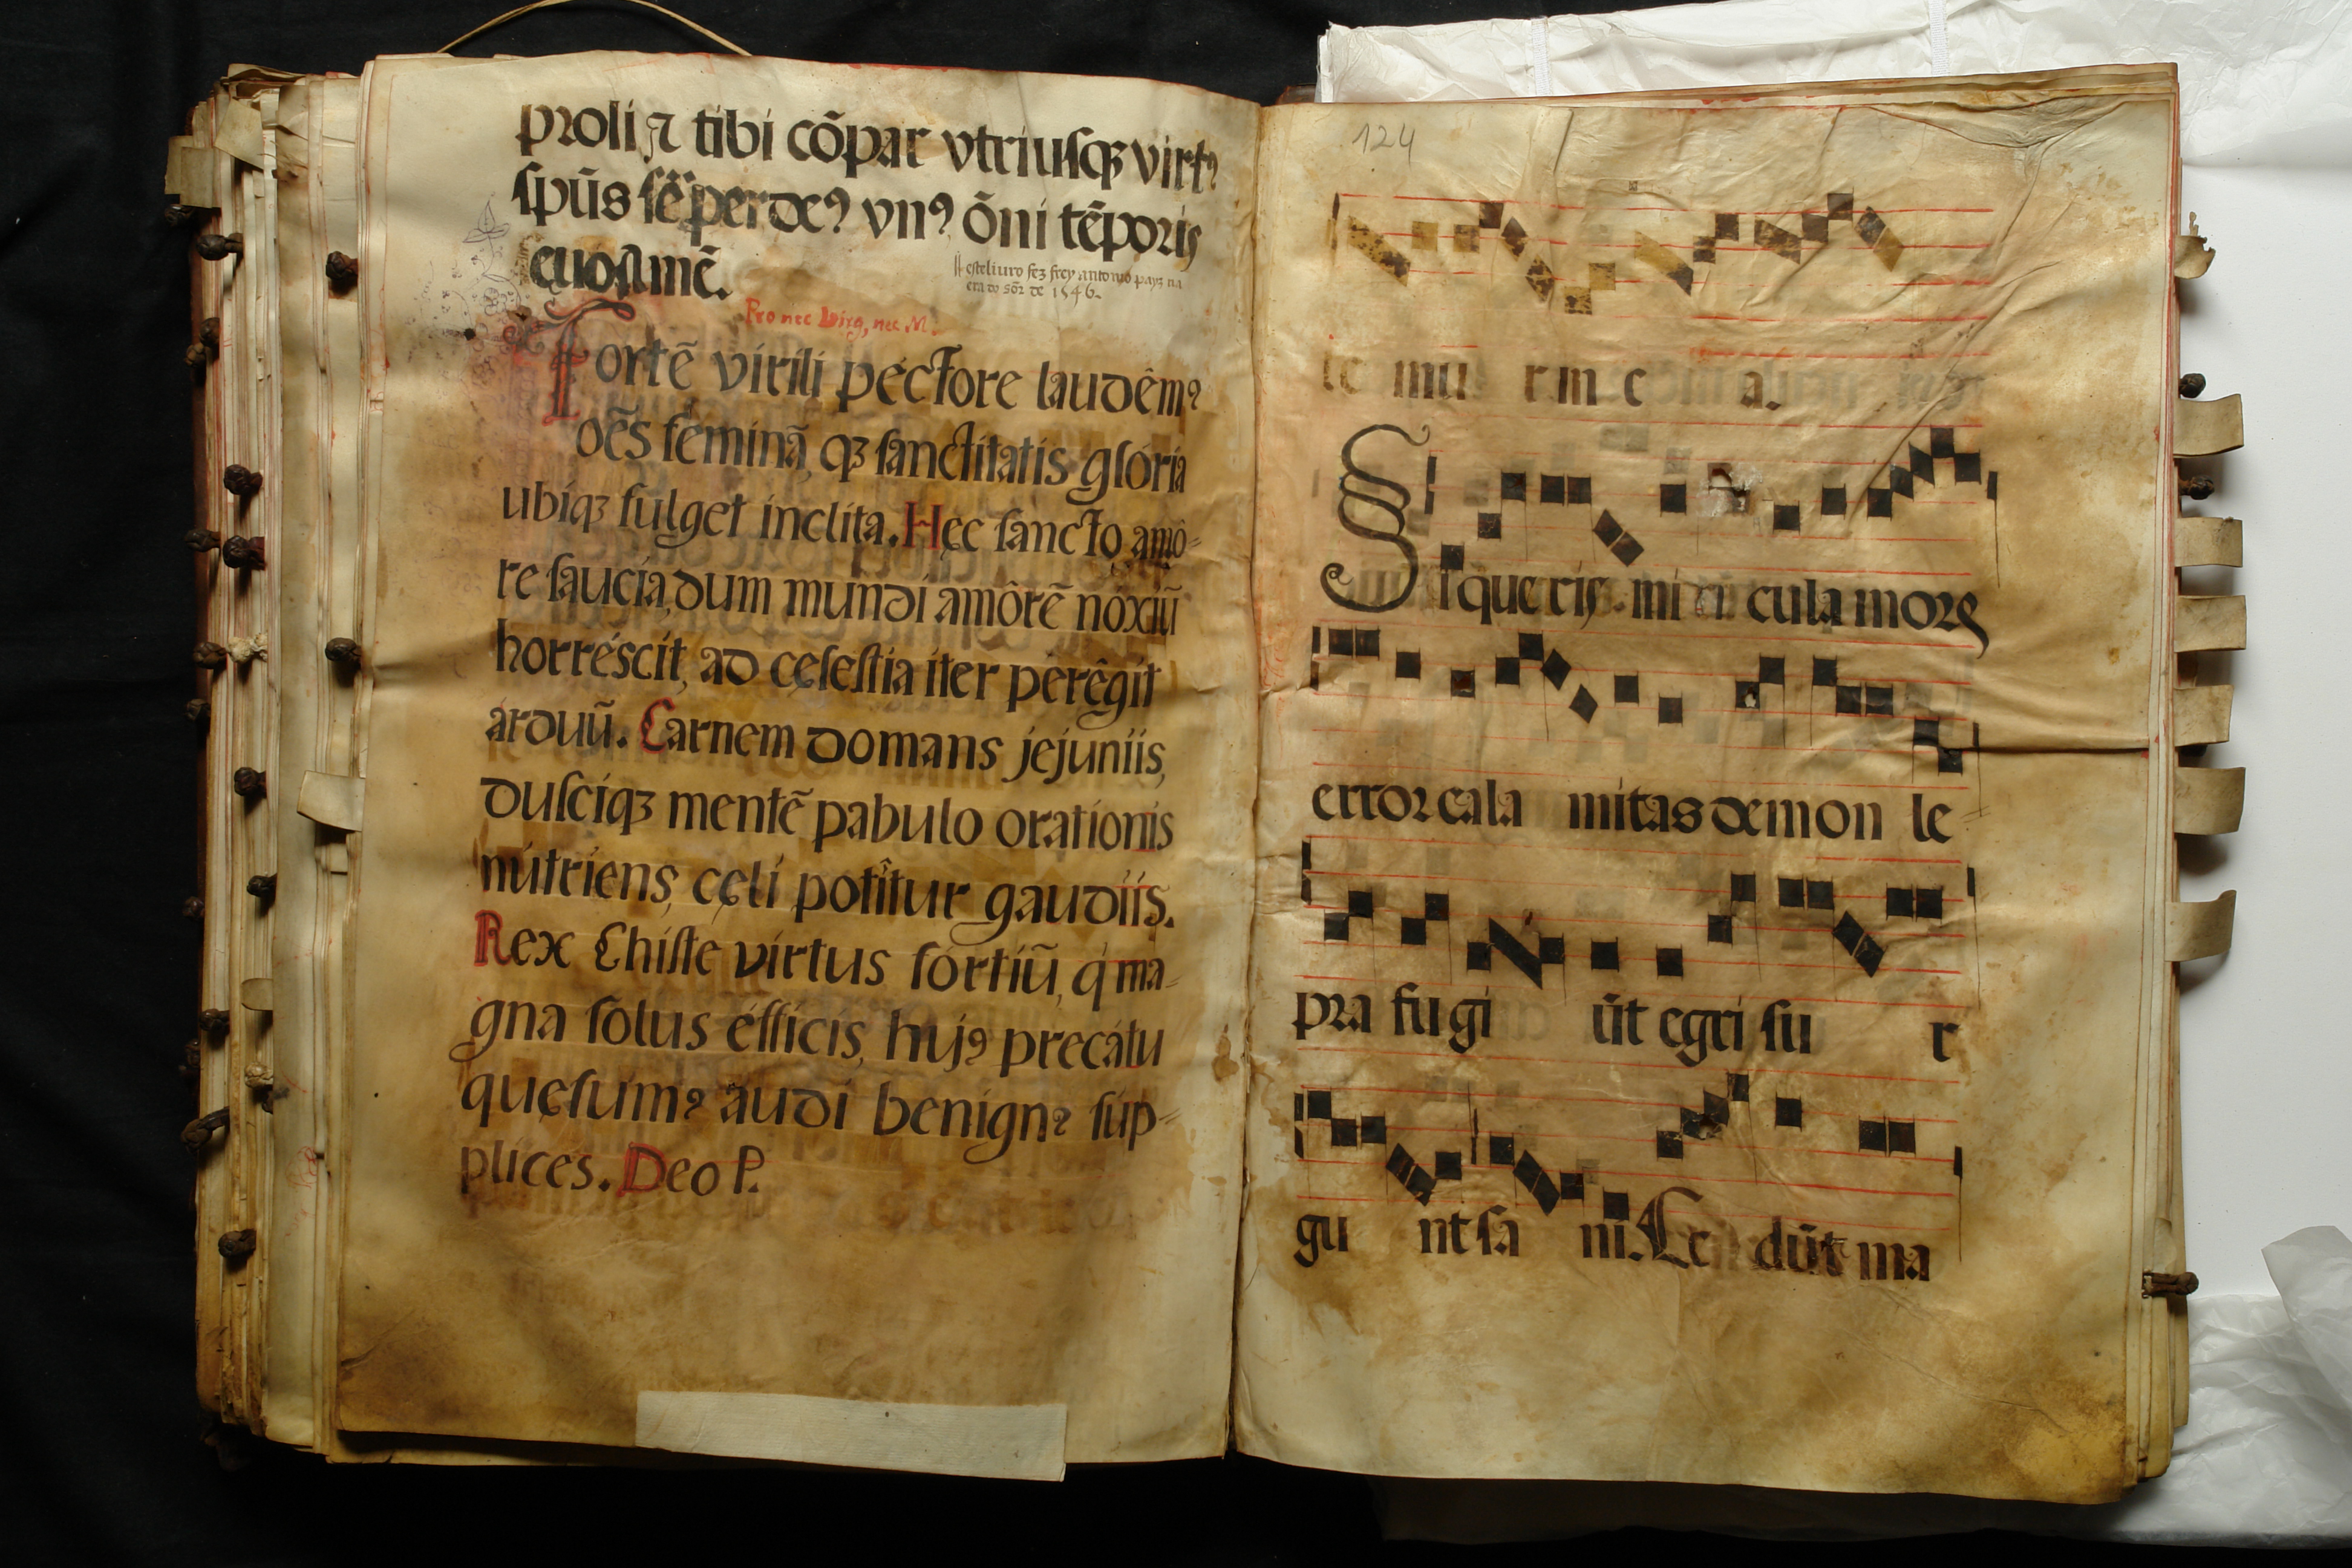 proli ⁊ tibi cõpar vtriusqꝫ virtꝰ
spũs sẽper deꝰ vnꝰ õni tẽporis
euo. amẽ.
este liuro fez frey antonio payz na
era do sõr de 1546.
Pro nec Virg, nec M.
Fortẽ virili péctore laudêmꝰ
oẽs féminã, qꝫ sanctitatis glória
ubiqꝫ fulget inclita. Hęc sancto amô-
re saucia, dum mundi amôrẽ nóxiũ
horréscit, ad cęlestia iter perêgit
arduũ. Carnem domans jejuniis,
dulciqꝫ mentẽ pabulo orationis
nútriens, cęli potîtur gaudiis.
Rex Chiste virtus fórtiũ, q' ma-
gna solus éfficis, hujꝰ precátu
quęsumꝰ audi benignꝰ súp-
plices. Deo P.
124
te mu r in e a.
Si que ris mi ra cula mors
error cala mitas demon le-
pra fugi ũt egri su r
gu nt sa ni. Ce dũt ma